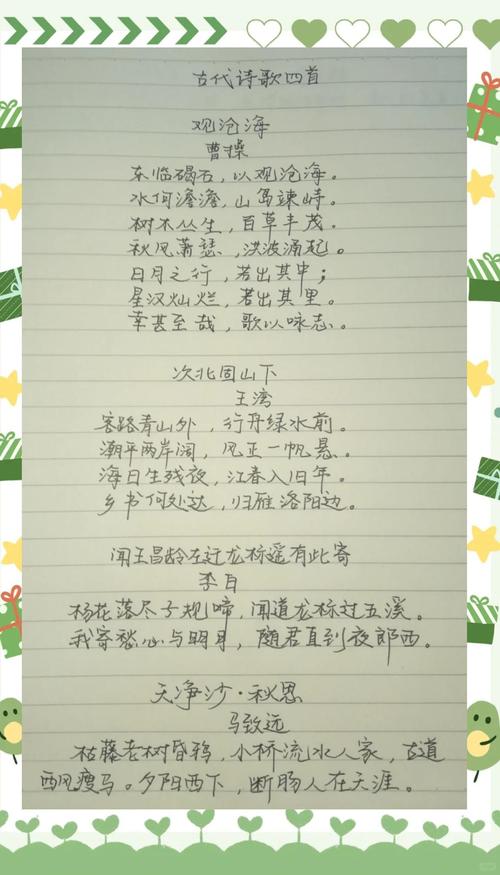 古代诗歌四首
观沧海
曹操
东临碣石，以观沧海。
水何澹澹，山岛竦峙。
树木丛生，百草丰茂。
秋风萧瑟，洪波涌起。
日月之行，若出其中；
星汉灿烂，若出其里。
幸甚至哉，歌以咏志。
次北固山下
王湾
客路青山外，行舟绿水前。
潮平两岸阔，风正一帆悬。
海日生残夜，江春入旧年。
乡书何处达，归雁洛阳边。
闻王昌龄左迁龙标遥有此寄
李白
杨花落尽子规啼，闻道龙标过五溪。
我寄愁心与明月，随君直到夜郎西。
天净沙·秋思
马致远
枯藤老树昏鸦，小桥流水人家，古道
西风瘦马。夕阳西下，断肠人在天涯。